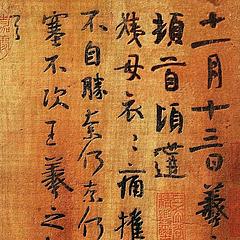 十一月十三日羲之
頓首頃遘
姨母哀〻痛摧
不自勝奈何奈何
塞不次王羲之